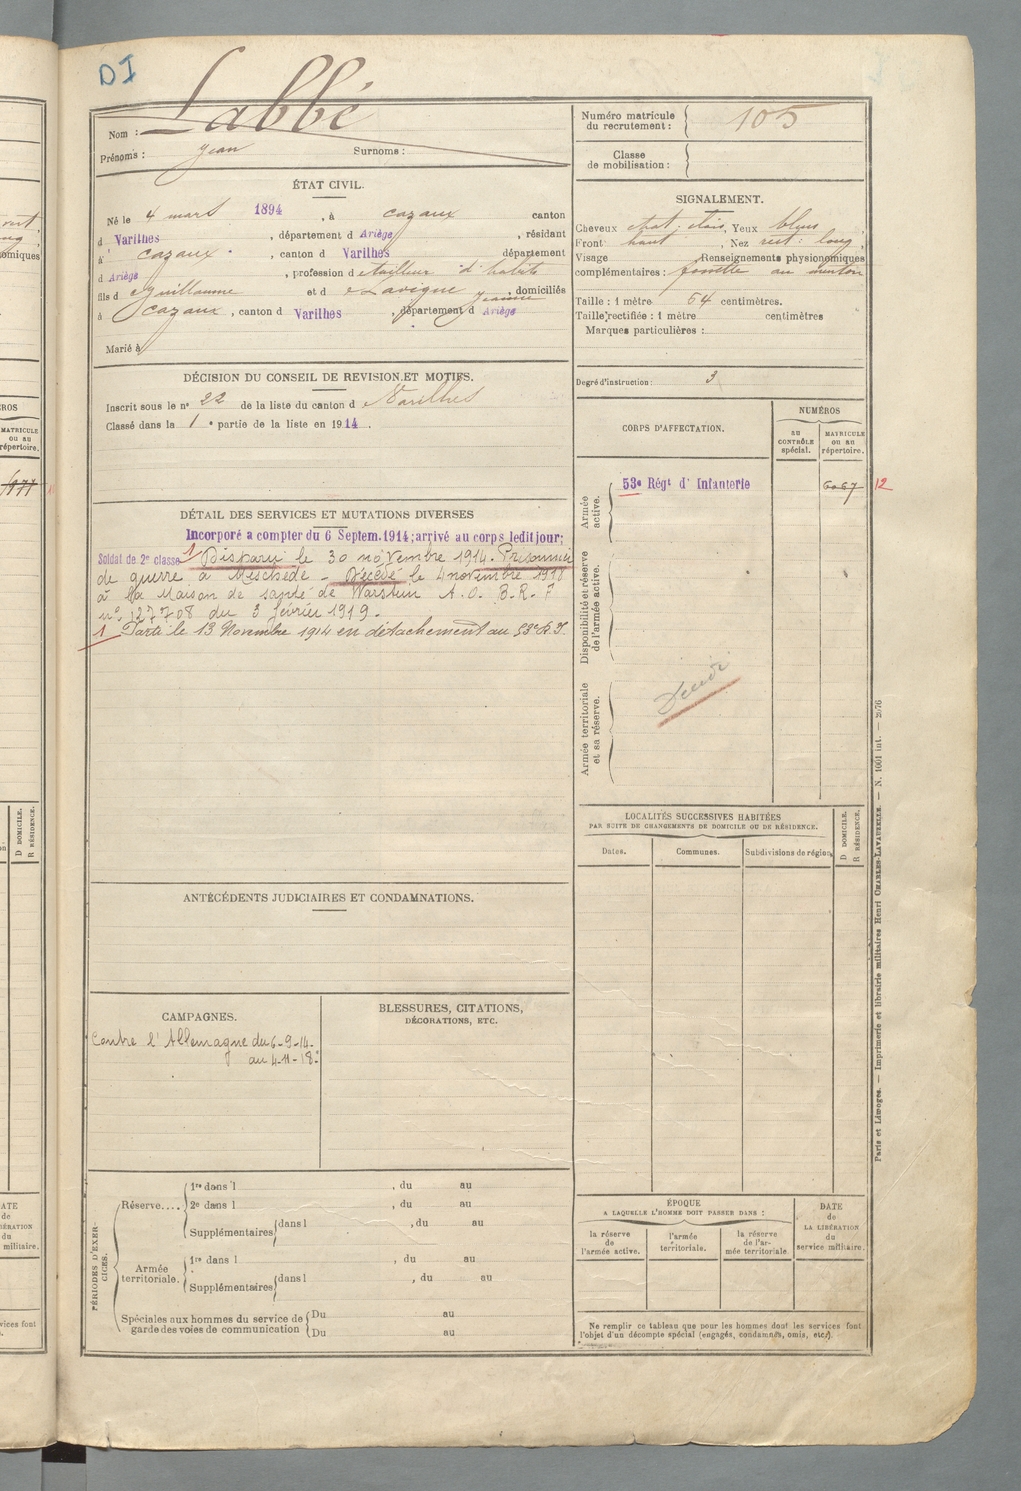 DI
Nom : Labbé
Prénoms : Jean Surnoms :
Numéro matricule du recrutement : 105
Classe de mobilisation :
ÉTAT CIVIL.
Né le 4 mars 1894, à Cazaux canton
d Varilhes, département d Ariège, résidant
à Cazaux, canton d Varilhes département
d Ariège, profession de tailleur d'habits
fils de Guillaume et de Lavigne Jeanne, domiciliés
à Cazaux, canton d Varilhes, département d Ariège
Marié à
SIGNALEMENT.
Cheveux chat: clair, Yeux bleus
Front haut, Nez rect: long,
Visage Renseignements physionomiques
complémentaires : fossette au menton
Taille : 1 mètre 64 centimètres.
Taille rectifiée : 1 mètre centimètres
Marques particulières :
Degré d'instruction : 3
DÉCISION DU CONSEIL DE REVISION ET MOTIFS.
Inscrit sous le n° 22 de la liste du canton de Varilhes
Classé dans la 1e partie de la liste en 1914.
CORPS D'AFFECTATION.
NUMÉROS
au CONTRÔLE spécial.
MATRICULE ou au répertoire.
Armée active.
53e Régt d' Infanterie 6067 12
Disponibilité et réserve de l'armée active.
Armée territoriale et sa réserve.
Décédé
DÉTAIL DES SERVICES ET MUTATIONS DIVERSES
Incorporé a compter du 6 Septem. 1914; arrivé au corps ledit jour;
Soldat de 2e classe 1 Disparu le 30 novembre 1914. Prisonnier
de guerre à Meschede - Décédé le 4 novembre 1918
à la Maison de santé de Warstein A.O. B.R.F
n° 127708 du 3 février 1919.
1 Parti le 13 Novembre 1914 en détachement au 53e R.I.
LOCALITÉS SUCCESSIVES HABITÉES
PAR SUITE DE CHANGEMENTS DE DOMICILE OU DE RÉSIDENCE.
Dates. Communes. Subdivisions de région.
D DOMICILE.
R RÉSIDENCE.
ANTÉCÉDENTS JUDICIAIRES ET CONDAMNATIONS.
CAMPAGNES.
Contre l'Allemagne du 6-9-14-
au 4-11-18.
BLESSURES, CITATIONS,
DÉCORATIONS, ETC.
PÉRIODES D'EXERCICES.
Réserve.... 1re dans l , du au
2e dans l , du au
Supplémentaires dans l , du au
Armée territoriale. 1re dans l , du au
Supplémentaires dans l , du au
Spéciales aux hommes du service de garde des voies de communication
Du au
Du au
ÉPOQUE
A LAQUELLE L'HOMME DOIT PASSER DANS :
la réserve de l'armée active.
l'armée territoriale.
la réserve de l'armée territoriale
DATE de LA LIBÉRATION du service militaire.
Ne remplir ce tableau que pour les hommes dont les services font
l'objet d'un décompte spécial (engagés, condamnés, omis, etc.)
Paris et Limoges. — Imprimerie et librairie militaires Henri CHARLES-LAVAUZELLE. — N. 1001 int. — 2/76
MATRICULE
ou au
répertoire.
1977
D DOMICILE.
R RÉSIDENCE.